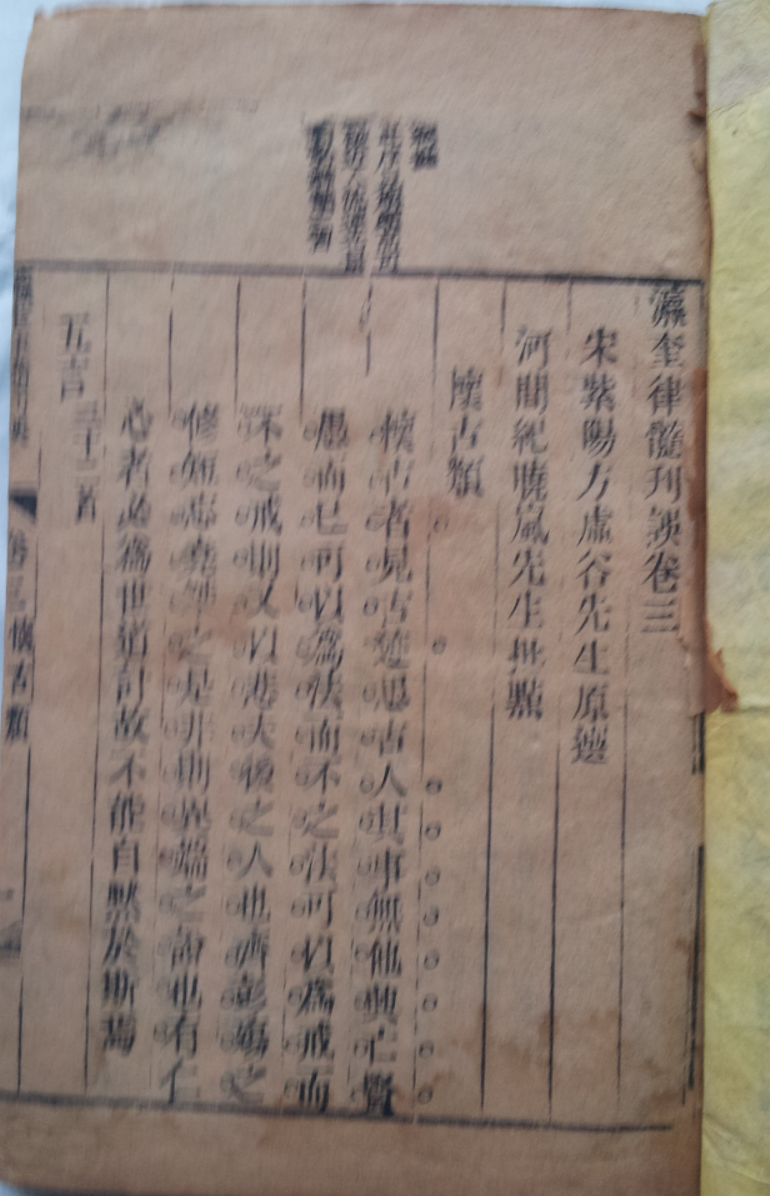 瀛奎律髓刊誤卷三
宋紫陽方虛谷先生原選
河間紀曉嵐先生批點
懷古類
懷古者見古迹思古人其事無他興亡賢
愚而已可以爲法而不之法可以爲戒而
不之戒則又以悲夫後之人也齊彭殤之
修短忘堯桀之是非則異端之說也有仁
心者必爲世道計故不能自默於斯焉
五言
卷三 懷古類